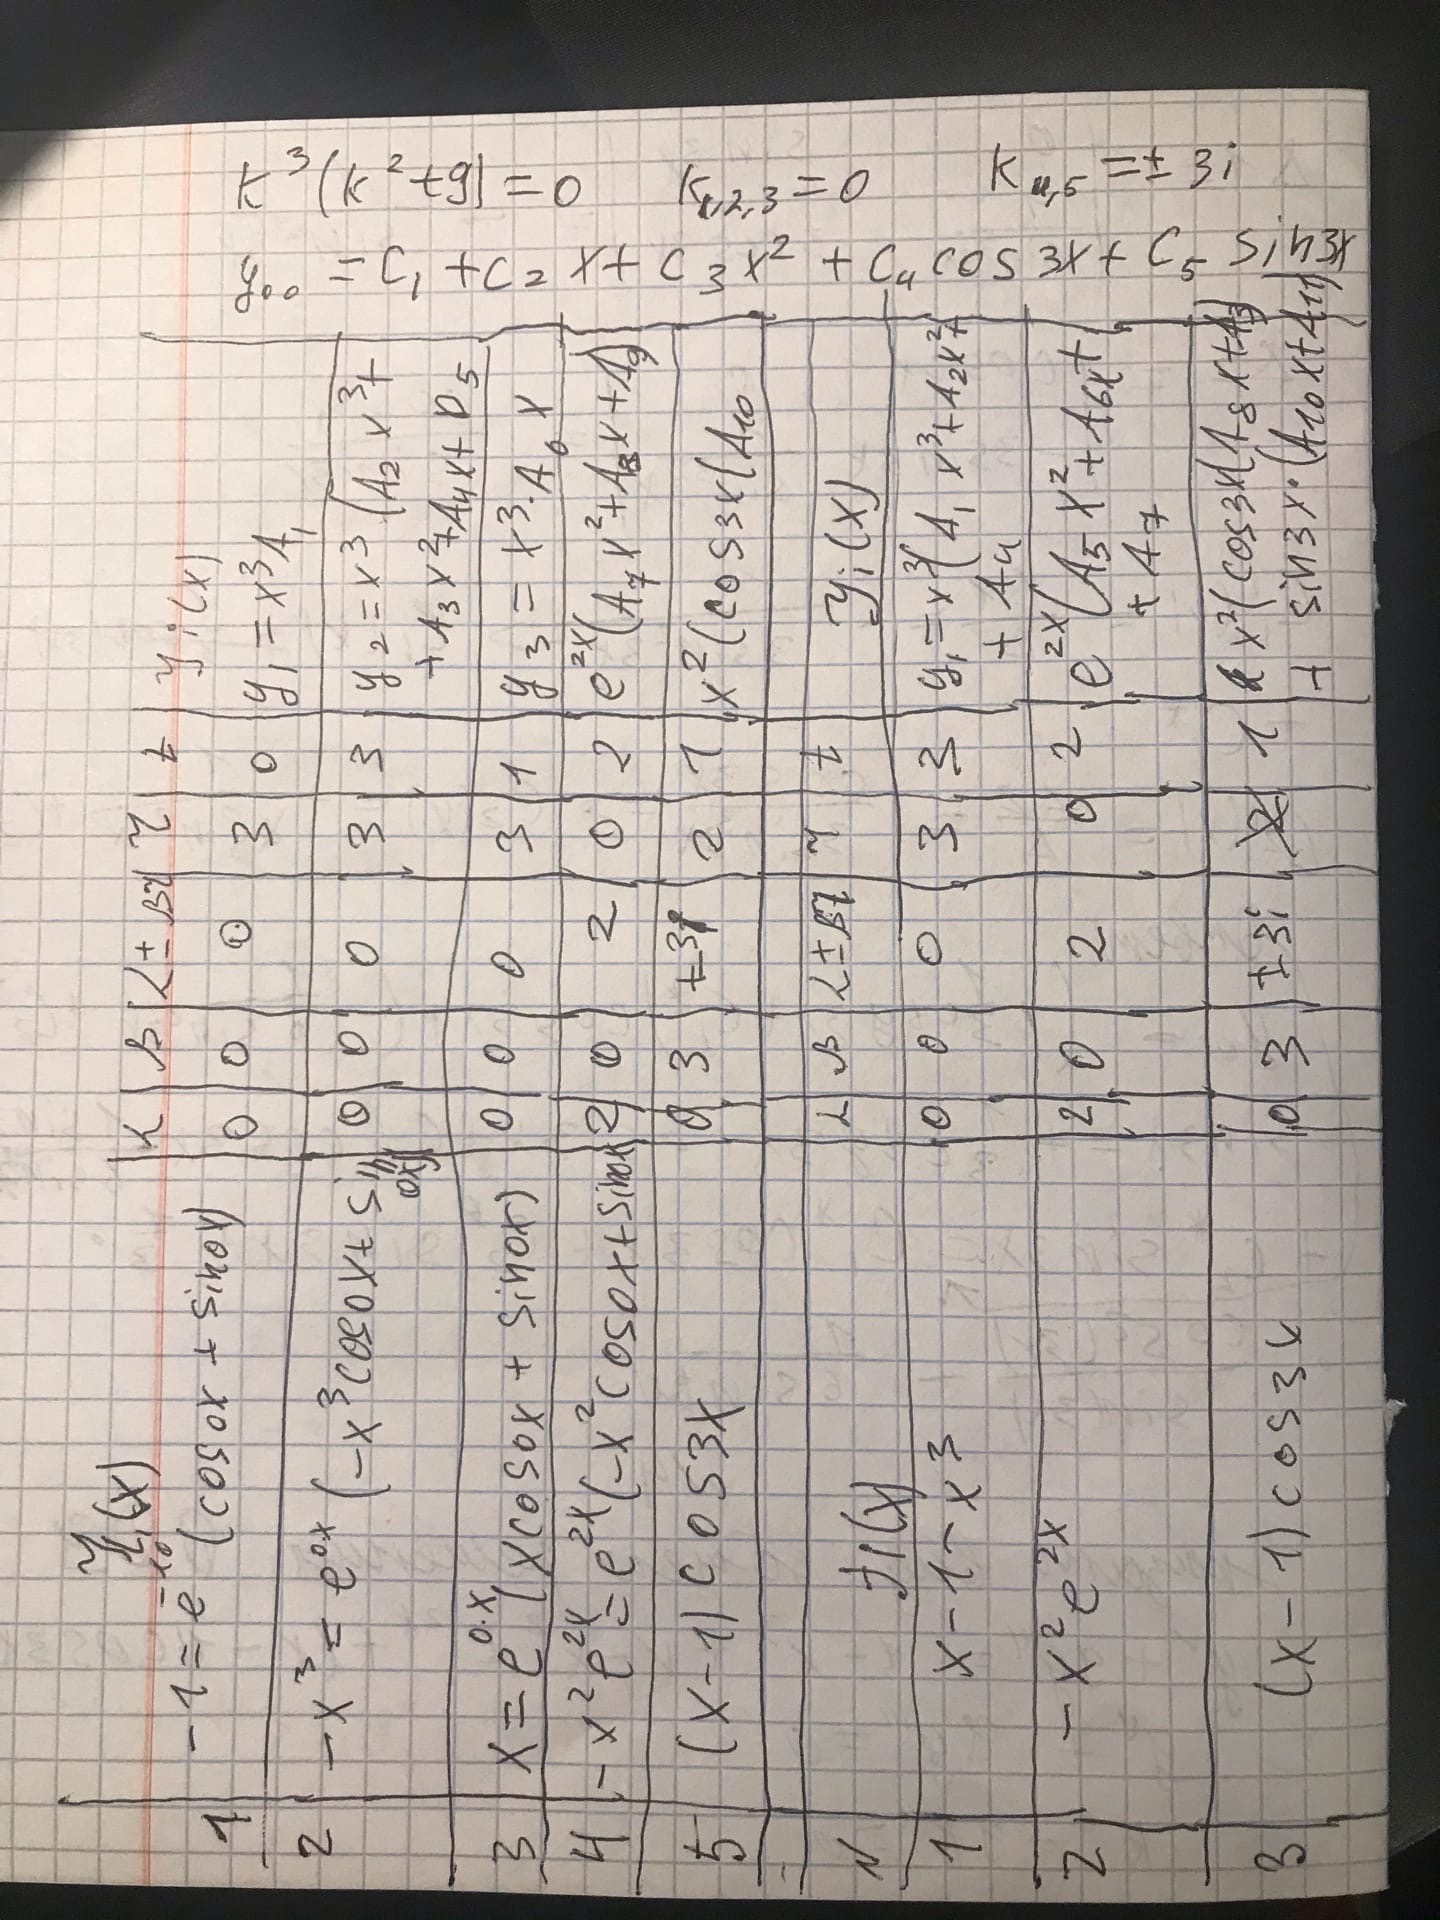 K³(k²+9)=0 K₁,₂,₃=0 K₄,₅=± 3i
y₀₀ = C₁ + C₂ x + C₃ x² + C₄ cos 3x + C₅ sin 3x
α β α±βi r t yi(x)
1 -1 = e (cos0x + sin0x) 0 0 0 3 0 y₁ = x³A₁
2 -x³ = e⁰ˣ (-x³cos0x + sin0x) 0 0 0 3 3 y₂ = x³ (A₂x³+
+ A₃x²+A₄x+D₅
3 x = e⁰·ˣ (xcos0x + sin0x) 0 0 0 3 1 y₃ = x³·A₆ x
4 -x²e²ˣ = e²ˣ(-x²cos0x+sin0x 2 0 2 0 2 e²ˣ(A₇x²+A₈x+A₉)
5 (x-1)cos3x 0 3 ±3i 2 1 x²(cos3x(A₁₀
N fi(x) α β α±βi r t yi(x)
1 x-1-x³ 0 0 0 3 3 y₁=x³(A₁x³+A₂x²+
+ A₄
2 -x²e²ˣ 2 0 2 0 2 e²ˣ(A₅x²+A₆x+
+ A₇
3 (x-1)cos3x 0 3 ±3i 1 x²(cos3x(A₈x+A₉)
+ sin3x·(A₁₀x+A₁₁)